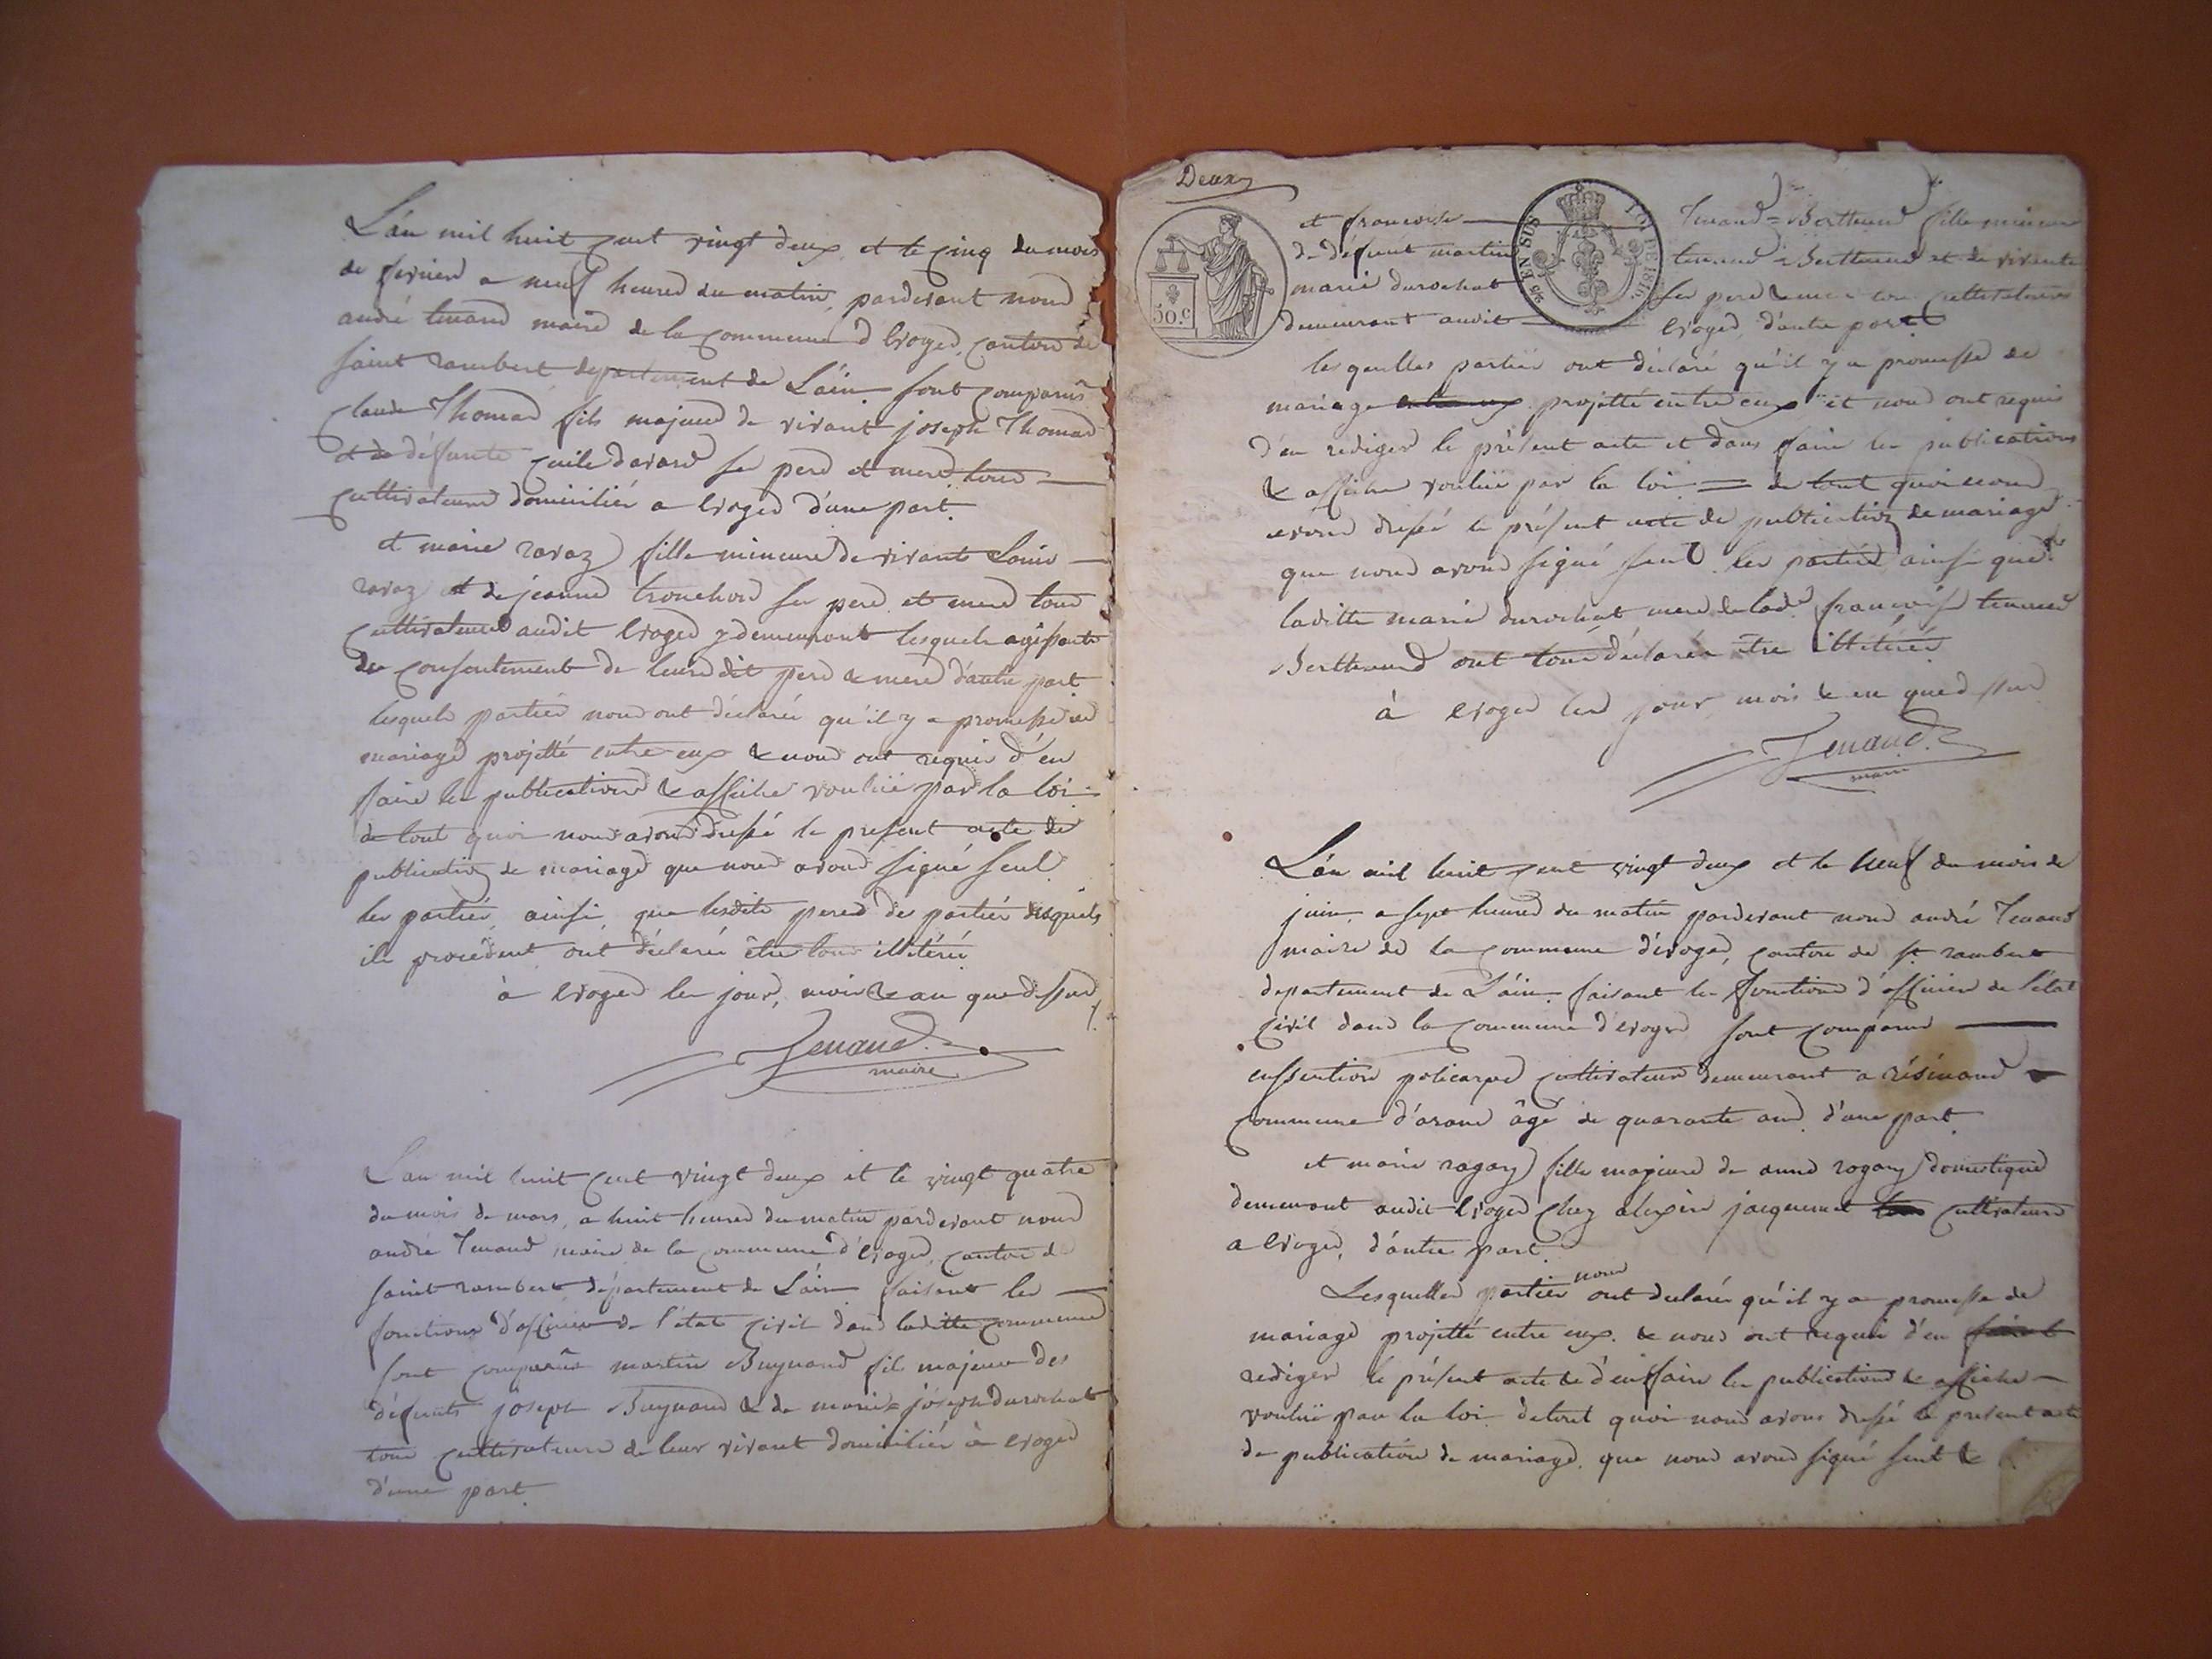 L'an mil huit cent vingt deux et le cinq du mois
de fevrier a neuf heures du matin, pardevant nous
andré tenand maire de la commune d'evoges, canton de
saint rambert departement de L'ain sont comparus
claude Thomas fils majeur de vivant joseph Thomas
et de défunte ses pere et mere tous
cultivateurs domiciliés a evoges d'une part.
et marie ravaz fille mineure de vivants Louis
ravaz et de jeanne tronchon ses pere et mere tous
cultivateurs audit evoges y demeurant lesquels agissants
du consentement de leurs dit pere & mere d'autre part
lesquels partiés nous ont déclarés qu'il y a promesse de
mariage projetté entre eux & nous ont requis d'en
faire les publications & affiches voulüe par la loi
de tout quoi nous avons dressé le present acte de
publication de mariage que nous avons signé seul
les partiés, ainsi, que lesdits peres des partiés desquels
ils procedent ont déclarés être tous illitérés
à evoges les jour, mois & an que dessus
Tenand
maire
L'an mil huit cent vingt deux et le vingt quatre
du mois de mars, a huit heures du matin pardevant nous
andré Tenand maire de la commune d'evoges, canton de
saint rambert département de L'ain faisant les
fonctions d'officier de l'état civil dans laditte commune
sont comparûs martin Buynand fils majeur des
défunts joseph Buynand & de marie joseph durochat
tous cultivateurs de leur vivant domiciliés à evoges
d'une part.
Deux
50.c
EN SUS
et francoise Tenand = Berthend fille mineure
de défunt martin tenand = Berthend et de vivante
marie durochat ses pere & mere cultivateurs
demeurant audit evoges, d'autre part
lesquelles partiés ont déclaré qu'il y a promesse de
mariage projetté entre eux et nous ont requis
d'en rediger le présent acte et d'en faire les publications
& affiches voulüe par la loi = de tout quoi nous
avons dressé le présent acte de publication de mariage
que nous avons signé seul les partiés ainsi que
laditte marie durochat mere de lade francoise tenand
Berthend ont tous déclarés être illitérés
à evoges les jour mois & an que dessus
Tenand
maire
L'an mil huit cent vingt deux et le neuf du mois de
juin, a sept heures du matin pardevant nous andré Tenand
maire de la commune d'évoges, canton de st rambert
departement de L'ain, faisant les fonctions d'officier de l'état
civil dans la commune d'evoges sont comparus
policarpe cultivateur demeurant a résinand
commune d'arand âgé de quarante ans d'une part
et marie ragazy fille majeure de anne ragazy domestique
demeurant audit evoges chez alexis jacquemet cultivateur
a evoges, d'autre part.
Lesquelles partiés nous ont declarés qu'il y a promesse de
mariage projetté entre eux. & nous ont requis d'en
rediger le présent acte & d'en faire les publications & affiches
voulüe par la loi de tout quoi nous avons dressé le present acte
de publication de mariage, que nous avons signé seul &